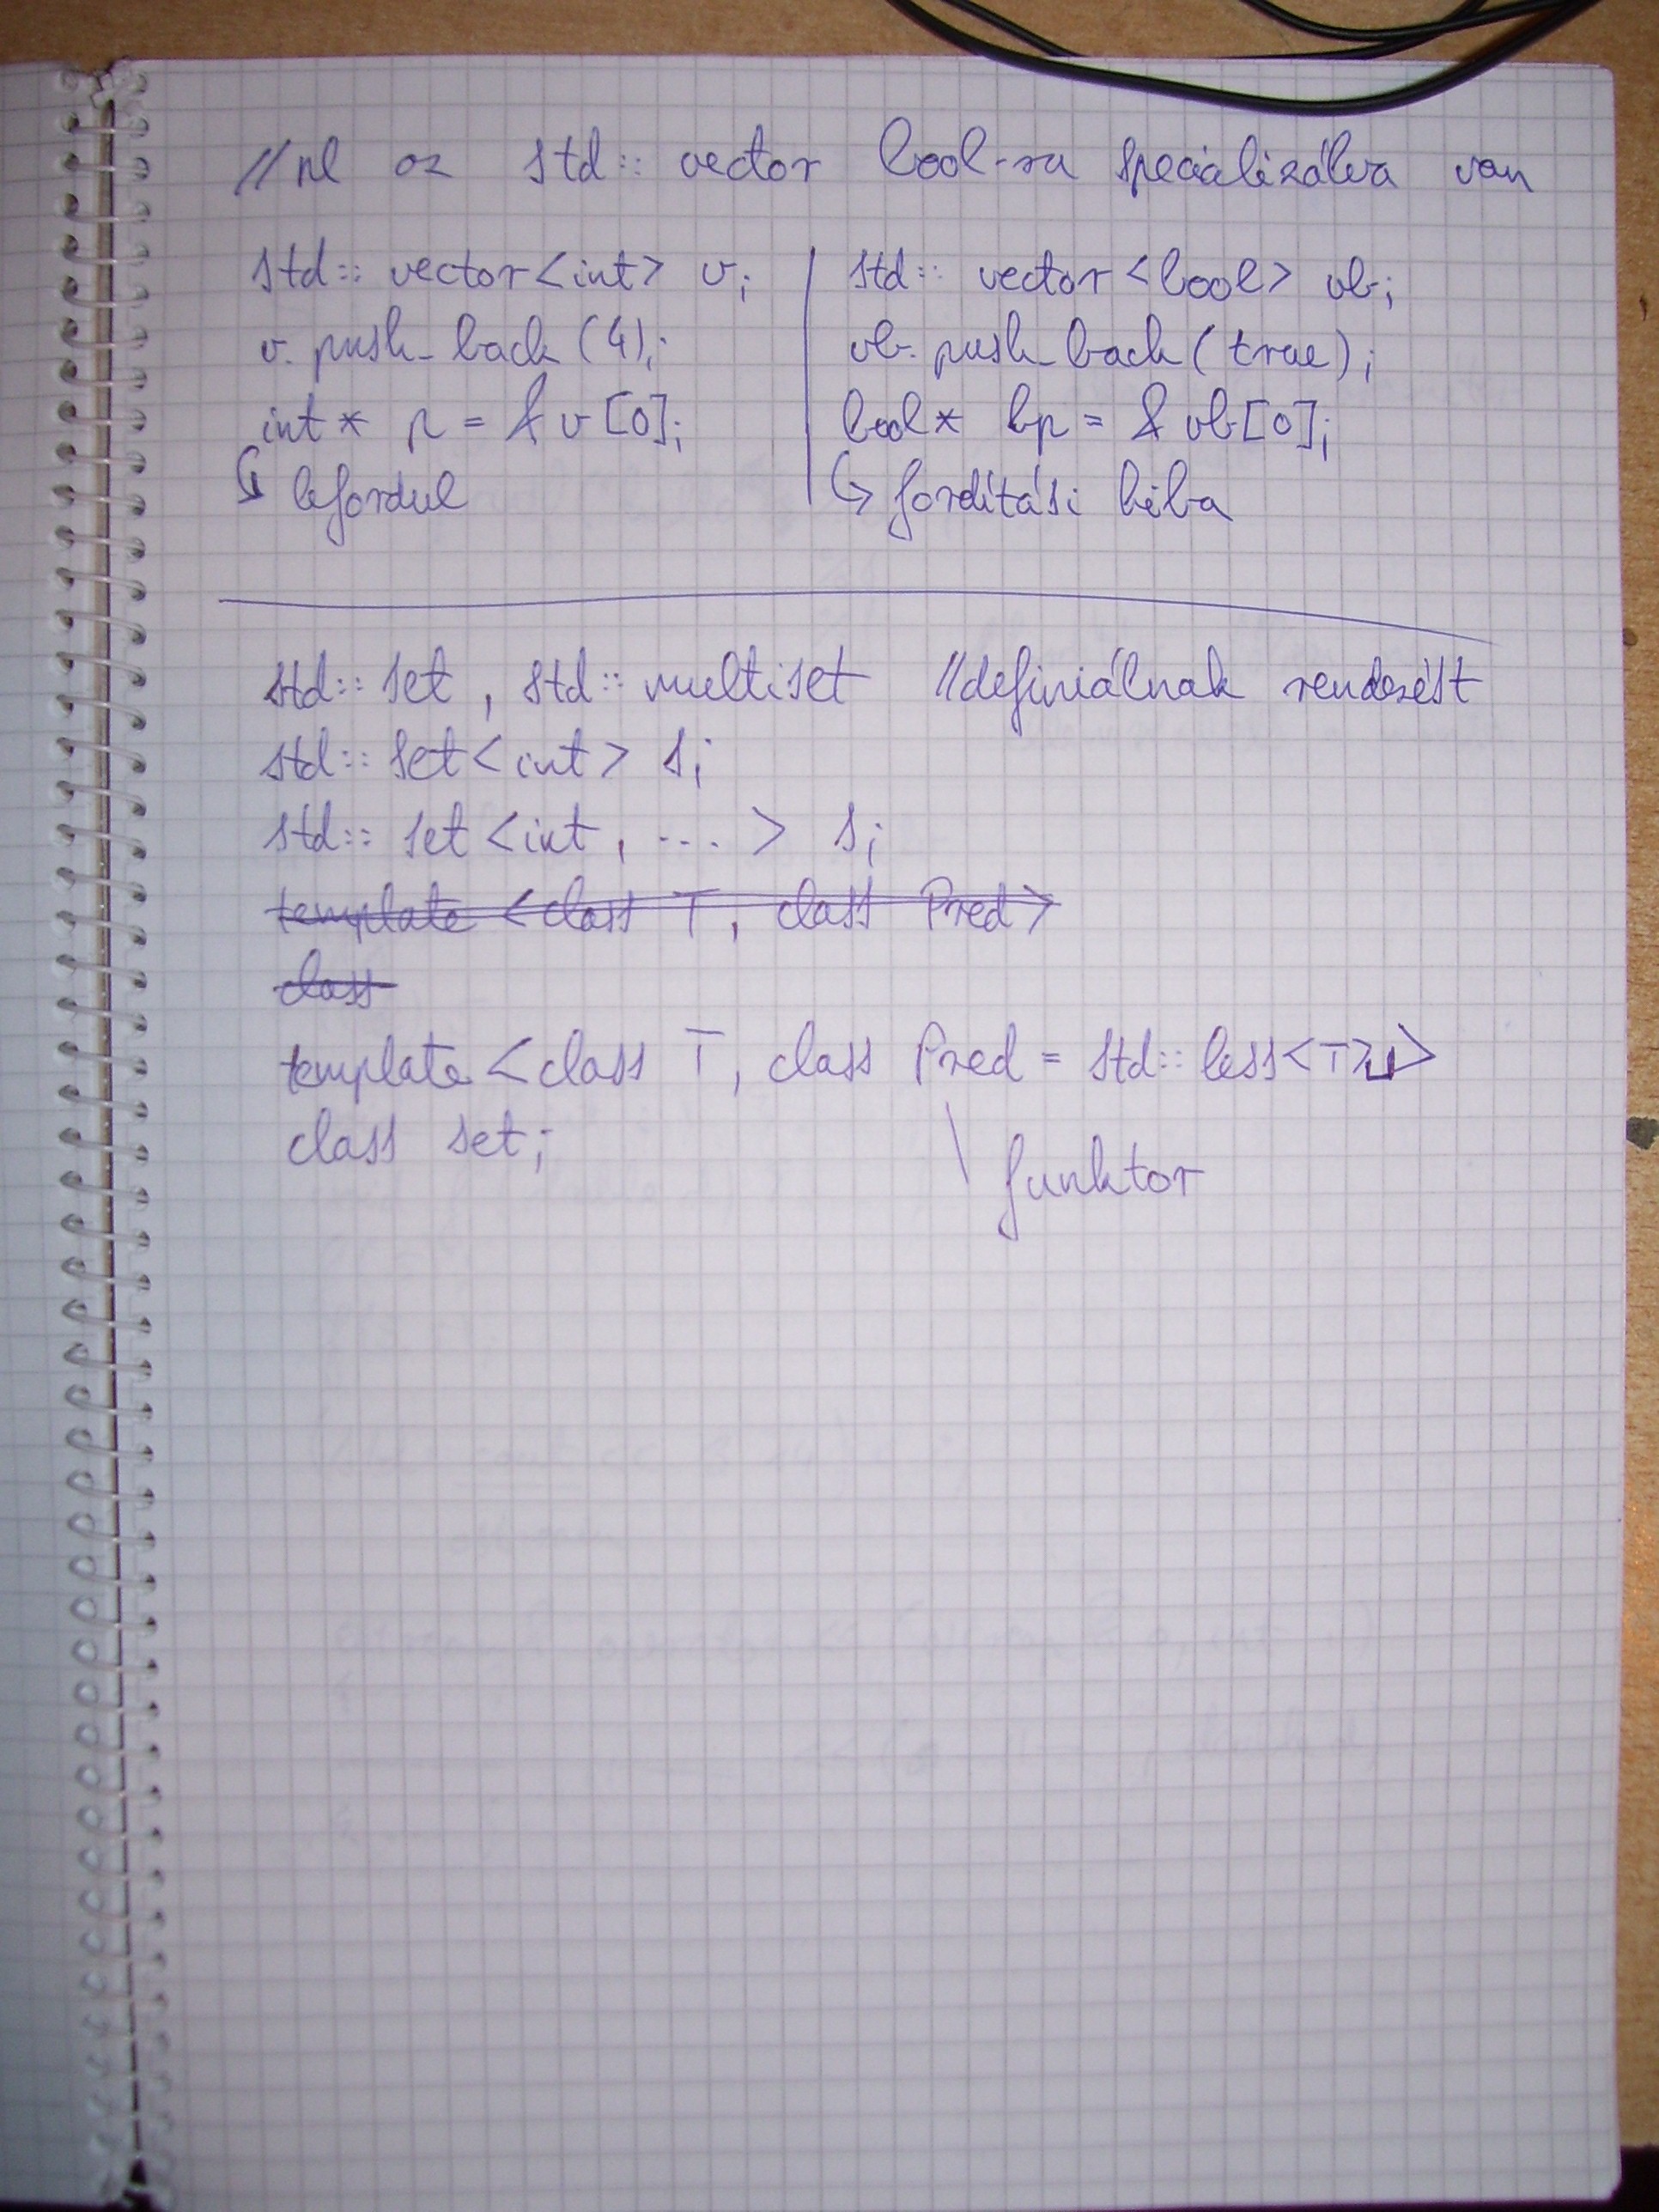 //pl az std:: vector bool-ra specializálva van
std:: vector<int> v;
v. push_back (4);
int* p = &v[0];
↳ lefordul
std:: vector <bool> vb;
vb. push_back (true);
bool* bp = & vb[0];
↳ fordítási hiba
std:: set , std:: multiset //definiálnak rendezést
std:: set<int> s;
std:: set <int, ...> s;
template <class T, class Pred>
class
template <class T, class Pred = std:: less<T>␣>
class set;
funktor